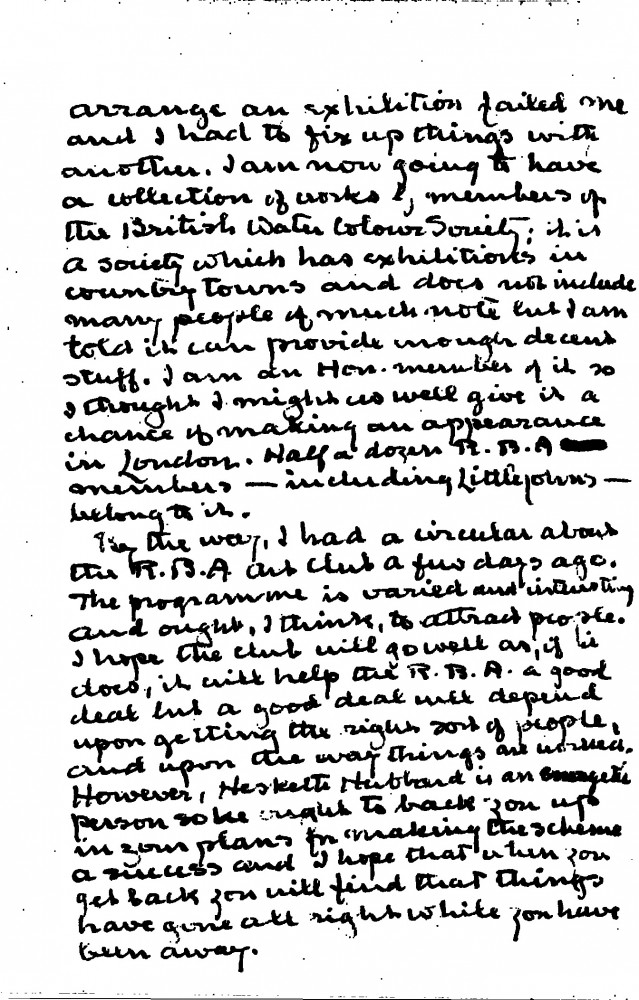 arrange an exhibition failed me
and I had to fix up things with
another. I am now going to have
a collection of works by members of
the British Water Colour Society; it is
a society which has exhibitions in
country towns and does not include
many people of much note but I am
told it can provide enough decent
stuff. I am an Hon. member of it so
I thought I might as well give it a
chance of making an appearance
in London. Half a dozen R.B.A
members — including Littlejohns —
belong to it.
By the way, I had a circular about
the R.B.A Art Club a few days ago.
The programme is varied and interesting
and ought, I think, to attract people.
I hope the club will go well as, if it
does, it will help the R.B.A. a good
deal but a good deal will depend
upon getting the right sort of people,
and upon the way things are worked.
However, Hesketh Hubbard is an energetic
person so he ought to back you up
in your plans for making the scheme
a success and I hope that when you
get back you will find that things
have gone all right while you have
been away.